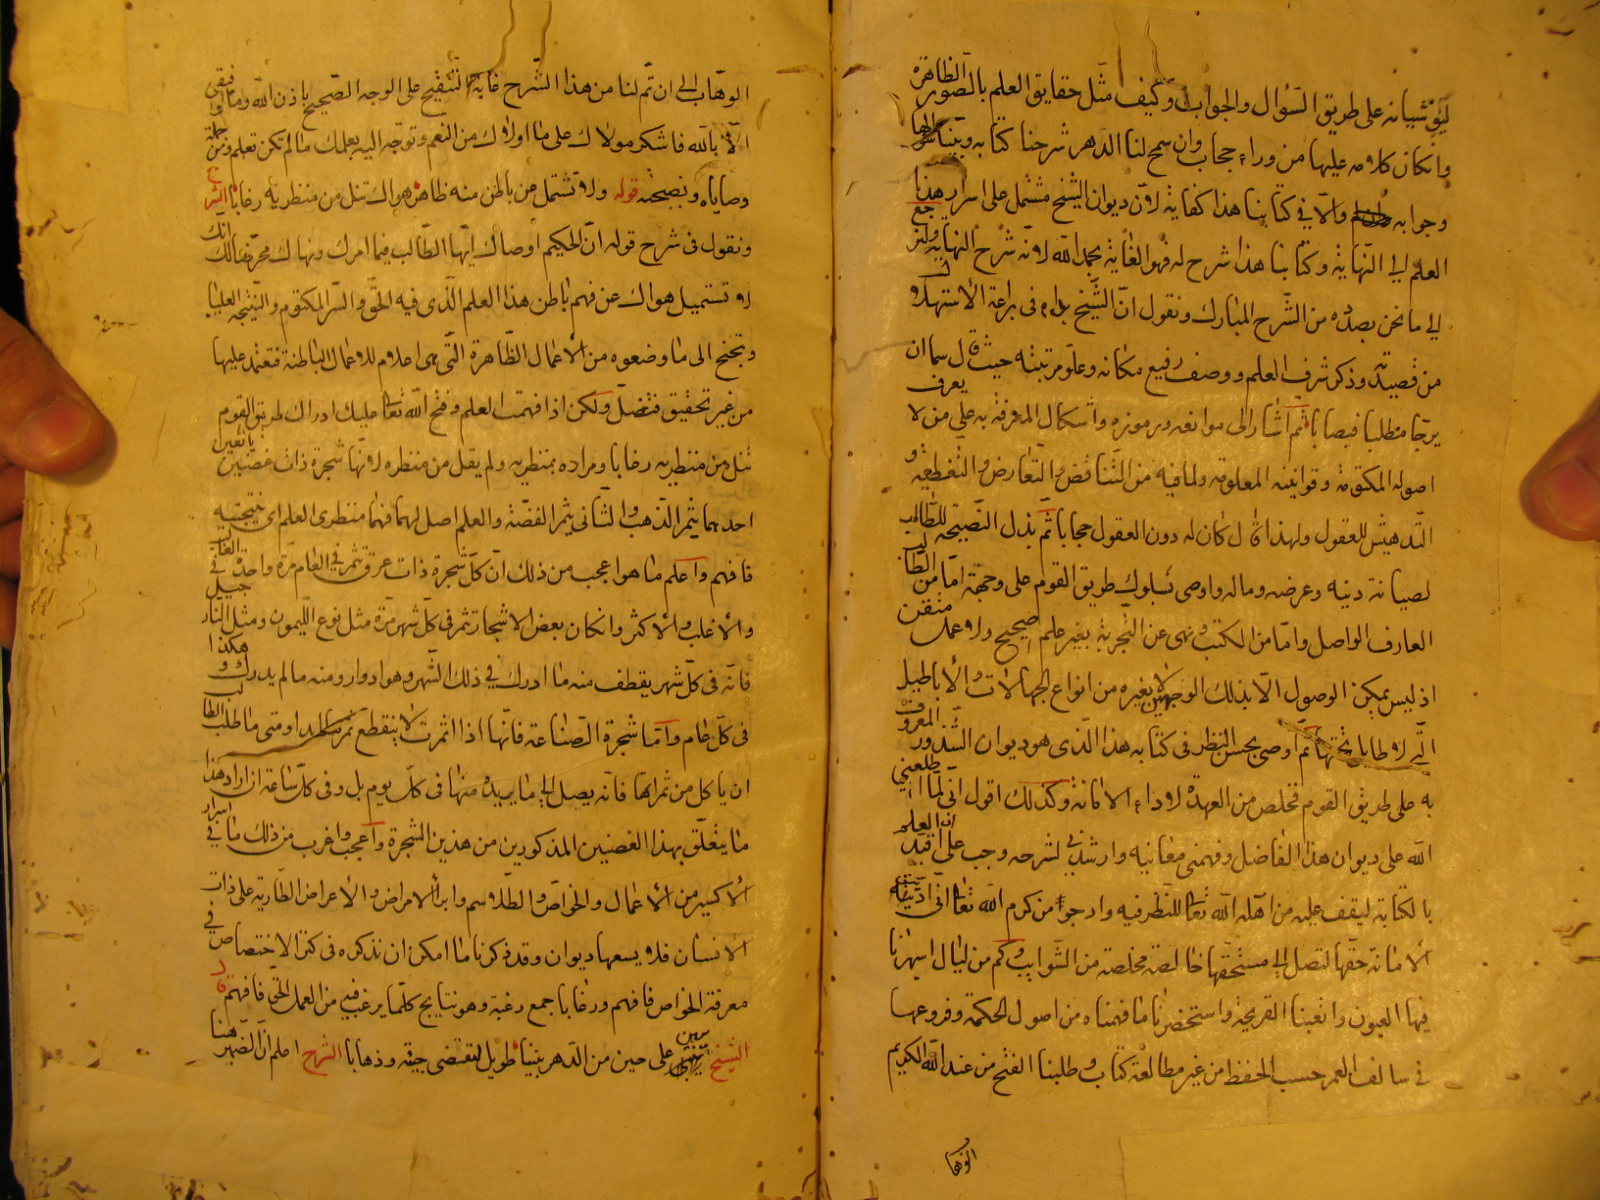 على طريق السؤال والجواب وكيف مثل حقايق العلم بالصور الظاهرة
وان كان كلامه عليها من وراء حجاب وان سمح لنا الدهر شرحنا كتابه وبيّنا
وجوابه والّا ففي كتابنا هذا كفاية لانّ ديوان الشيخ مشتمل على اسرار هذا
العلم الى النهاية وكتابنا هذا شرح له فهو الغاية بحمد الله لانّه شرح النهاية ولنرجع
الى ما نحن بصدده من الشرح المبارك ونقول انّ الشيخ بداء في براعة الاستهلال
من قصيدته وذكر شرف العلم ووصف رفيع مكانه وعلوّ مرتبته حيث قال سما ان
يرجّا مطلبا فيصابا ثم اشار الى موانعه ورموزه واشكال المعرفة به على من لا يعرف
اصوله المكتومة وقوانينه المعلومة ولما فيه من التناقض والتعارض والتغطية و
التدهيش للعقول ولهذا قال كان له دون العقول حجابا ثم بذل النصيحة للطالب
لصيانة دينه وعرضه وماله واوصى بسلوك طريق القوم على وجهة امّا من
العارف الواصل وامّا من الكتب ونهى عن التجربة بغير علم صحيح ولا عمل متقن
اذ ليس يمكن الوصول الّا بذلك الوجهين لا بغيره من انواع الجهالات والاباطيل
ثم اوصى بحسن النظر في كتابه هذا الذى هو ديوان الشذور المعروف
به على طريق القوم فخلص من العهدة لاداء الامانة وكذلك اقول انّي لمّا اطلعني
الله على ديوان هذا الفاضل وفهمني معانيه وارشدني لشرحه وجب علي ان اقيّد العلم
بالكتابة ليقف عليه من اهّله الله تعا للنظر فيه وارجوا من كرم الله تعا انّي ادّيت
الامانة حقّها لتصل الى مستحقّها خالصة مخلصة من الشوايب وكم من ليال اسهرنا
فيها العيون واتعبنا القريحة واستحضرنا ما فهمناه من اصول الحكمة وفروعها
في سالف العمر حسب الحفظ من غير مطالعة كتاب وطلبنا الفتح من عند الله الكريم
الوها
الوهّاب الى ان تمّ لنا من هذا الشرح غاية التنقيح على الوجه الصحيح باذن الله وما توفيقي
الّا بالله فاشكر مولاك على ما اولاك من النعم وتوجّه اليه بعلمك ما لم تكن تعلم ومن جملة
وصاياه ونصيحته قوله ولا تشتمل عن باطن منه ظاهر هواك تنل من منتظريه رغابا الشرح
ونقول في شرح قوله انّ الحكيم اوصاك ايّها الطالب فيما امرك ونهاك محرّضا لك انّك
لا تستميل هواك عن فهم باطن هذا العلم الّذى فيه الحق والسرّ المكتوم والنتيجه العليا
وتجنح الى ما وضعوه من الأعمال الظاهرة التّى هى اعلام للاعمال الباطنة فتعتمد عليها
من غير تحقيق فتضلّ ولكن اذا فهمت العلم وفتح الله تعا عليك ادراك طريق القوم
تنل من منتظريه رغابا ومراده بمنتظريه ولم يقل من منتظره لانّها شجرة ذات غصنين
احدهما يثمر الذهب والثاني يثمر الفضّة والعلم اصل لهما فهما منتظرى العلم اى نتيجتيه
فافهم واعلم ما هو اعجب من ذلك انّ كلّ شجرة ذات عرق تثمر في العام مرّة واحدة في الغالب
والأغلب والأكثر وان كان بعض الاشجار تثمر في كلّ شهر مرّة مثل نوع الليمون ومثل
فانّه في كلّ شهر يقطف منه ما ادرك في ذلك الشهر وهو ادوار ومنه ما لم يدرك وهكذا
في كلّ عام وامّا شجرة الصناعة فانّها اذا اثمرت لا ينقطع ثمرتها ابدا ومتى ما طلب الطالب
ان ياكل من ثمرها فانّه يصل الى ما يريده منها في كلّ يوم بل وفي كلّ ساعة ان اراد هذا
ما يتعلّق بهذا الغصنين المذكورين من هذين الشجرة واعجب واغرب من ذلك ما في اسرار
الأكسير من الأعمال والخواصّ والطلاسم وابرأ الامراض والأعراض الطارية على ذات
الانسان فلا يسعها ديوان وقد ذكرنا ما امكن ان نذكره في كنز الاختصاص في
معرفة الخواص فافهم ورغابا جمع رغبة وهو نتايج كلّما يرغب فيه من العمل الحق فافهم قال
الشيخ على حين من الدهر بيننا طويل لتقتضى جيئة وذهابا الشرح اعلم انّ الضمير هنا